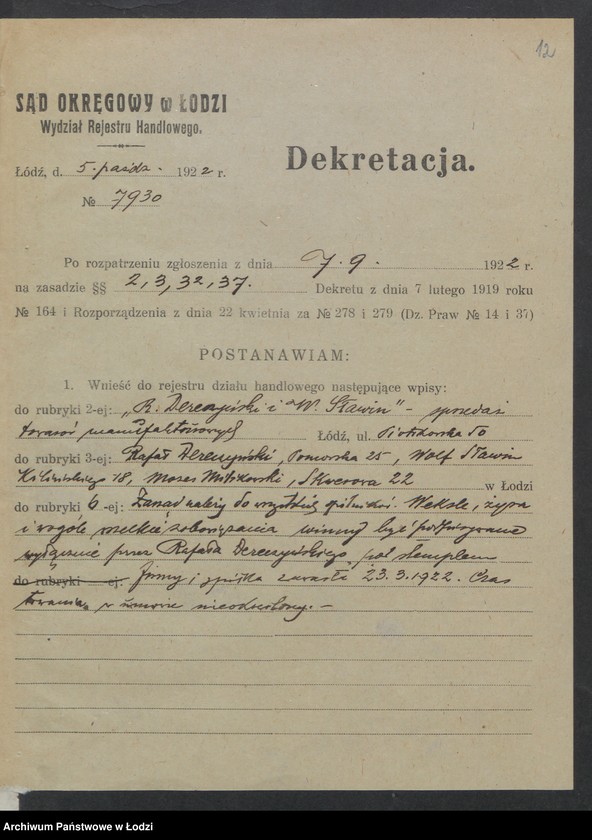 12
SĄD OKRĘGOWY w ŁODZI
Wydział Rejestru Handlowego.
Dekretacja.
Łódź, d. 5. paźdz. 1922 r.
№ 7930
Po rozpatrzeniu zgłoszenia z dnia 7. 9. 1922 r.
na zasadzie §§ 2, 3, 32, 37. Dekretu z dnia 7 lutego 1919 roku
№ 164 i Rozporządzenia z dnia 22 kwietnia za № 278 i 279 (Dz. Praw № 14 i 37)
POSTANAWIAM:
1. Wnieść do rejestru działu handlowego następujące wpisy:
do rubryki 2-ej: „R. Dereczyński i W. Sławin" - sprzedaż
towarów manufakturowych Łódź, ul. Piotrkowska 50
do rubryki 3-ej: Rafał Dereczyński, Pomorska 25, Wolf Sławin
Kilińskiego 18, Moses, Skwerowa 22 w Łodzi
do rubryki 6-ej: Zarząd należy do wszystkich spólników. Weksle, żyra
i wogóle wszelkie zobowiązania winny być podpisywane
wyłącznie przez Rafała Dereczyńskiego pod stemplem
do rubryki -ej: firmy i spółka zawarta 23.3.1922. Czas
trwania w umowie nieokreślony. -
Archiwum Państwowe w Łodzi